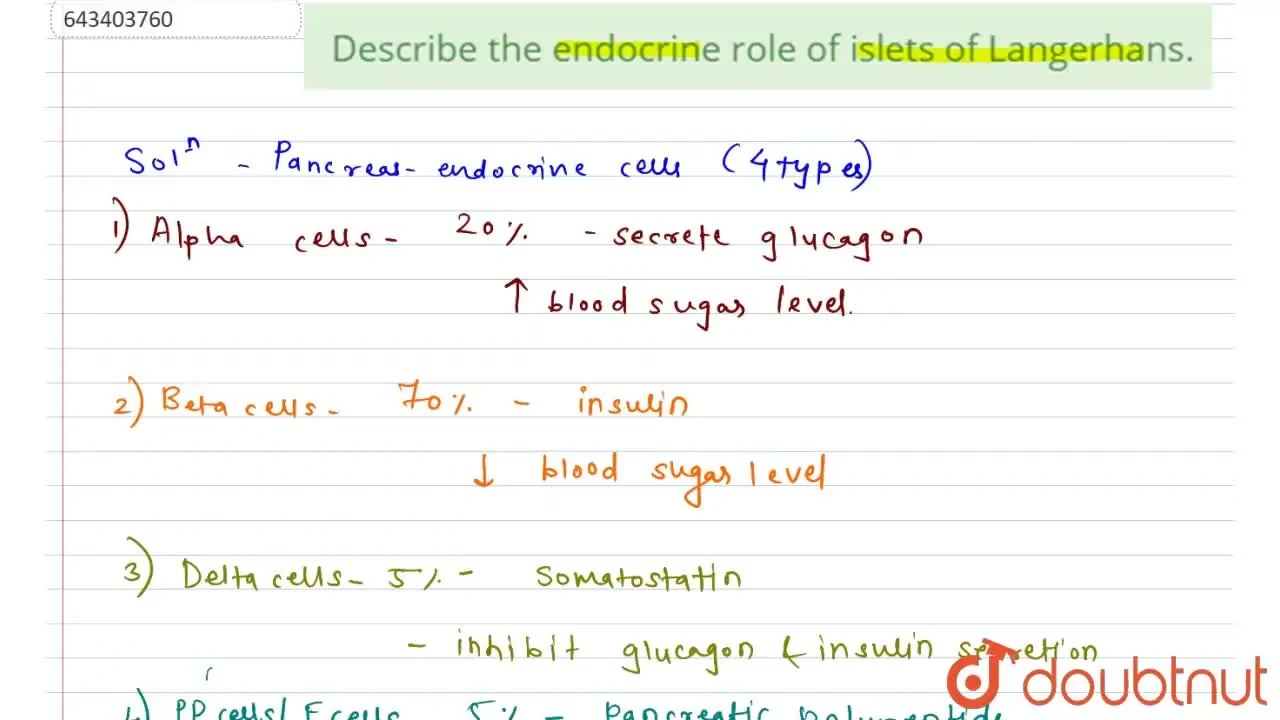 643403760
Describe the endocrine role of islets of Langerhans.
Solⁿ - Pancreas- endocrine cells (4 types)
1) Alpha cells- 20% - secrete glucagon
↑ blood sugar level.
2) Beta cells- 70% - insulin
↓ blood sugar level
3) Delta cells- 5% - Somatostatin
- inhibit glucagon & insulin secretion
doubtnut
4) PP cells/ F cells 5% - Pancreatic polypeptide